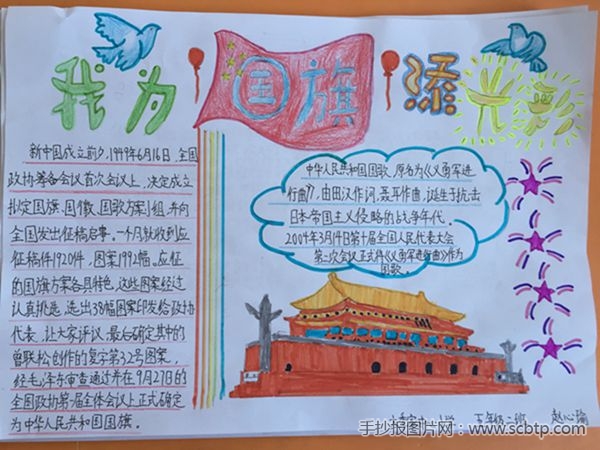 我为国旗添光彩
新中国成立前夕,1949年6月16日,全国
政协筹备会议首次会议上,决定成立
拟定国旗、国徽、国歌方案小组,并向
全国发出征稿启事。一个月就收到应
征稿件1920件,图案1992幅。应征
的国旗方案各具特色,这些图案经过
认真挑选,选出38幅图案印发给政协
代表,让大家评议,最后确定其中的
曾联松创作的复字第32号图案,
经毛泽东审查通过并在9月27日的
全国政协第一届全体会议上正式确定
为中华人民共和国国旗。
中华人民共和国国歌,原名为《义勇军进
行曲》,由田汉作词,聂耳作曲,诞生于抗击
日本帝国主义侵略的战争年代。
2004年3月14日第十届全国人民代表大会
第二次会议正式将《义勇军进行曲》作为
国歌。
小学 五年级二班 赵心瑜
手抄报图片网:www.scbtp.com